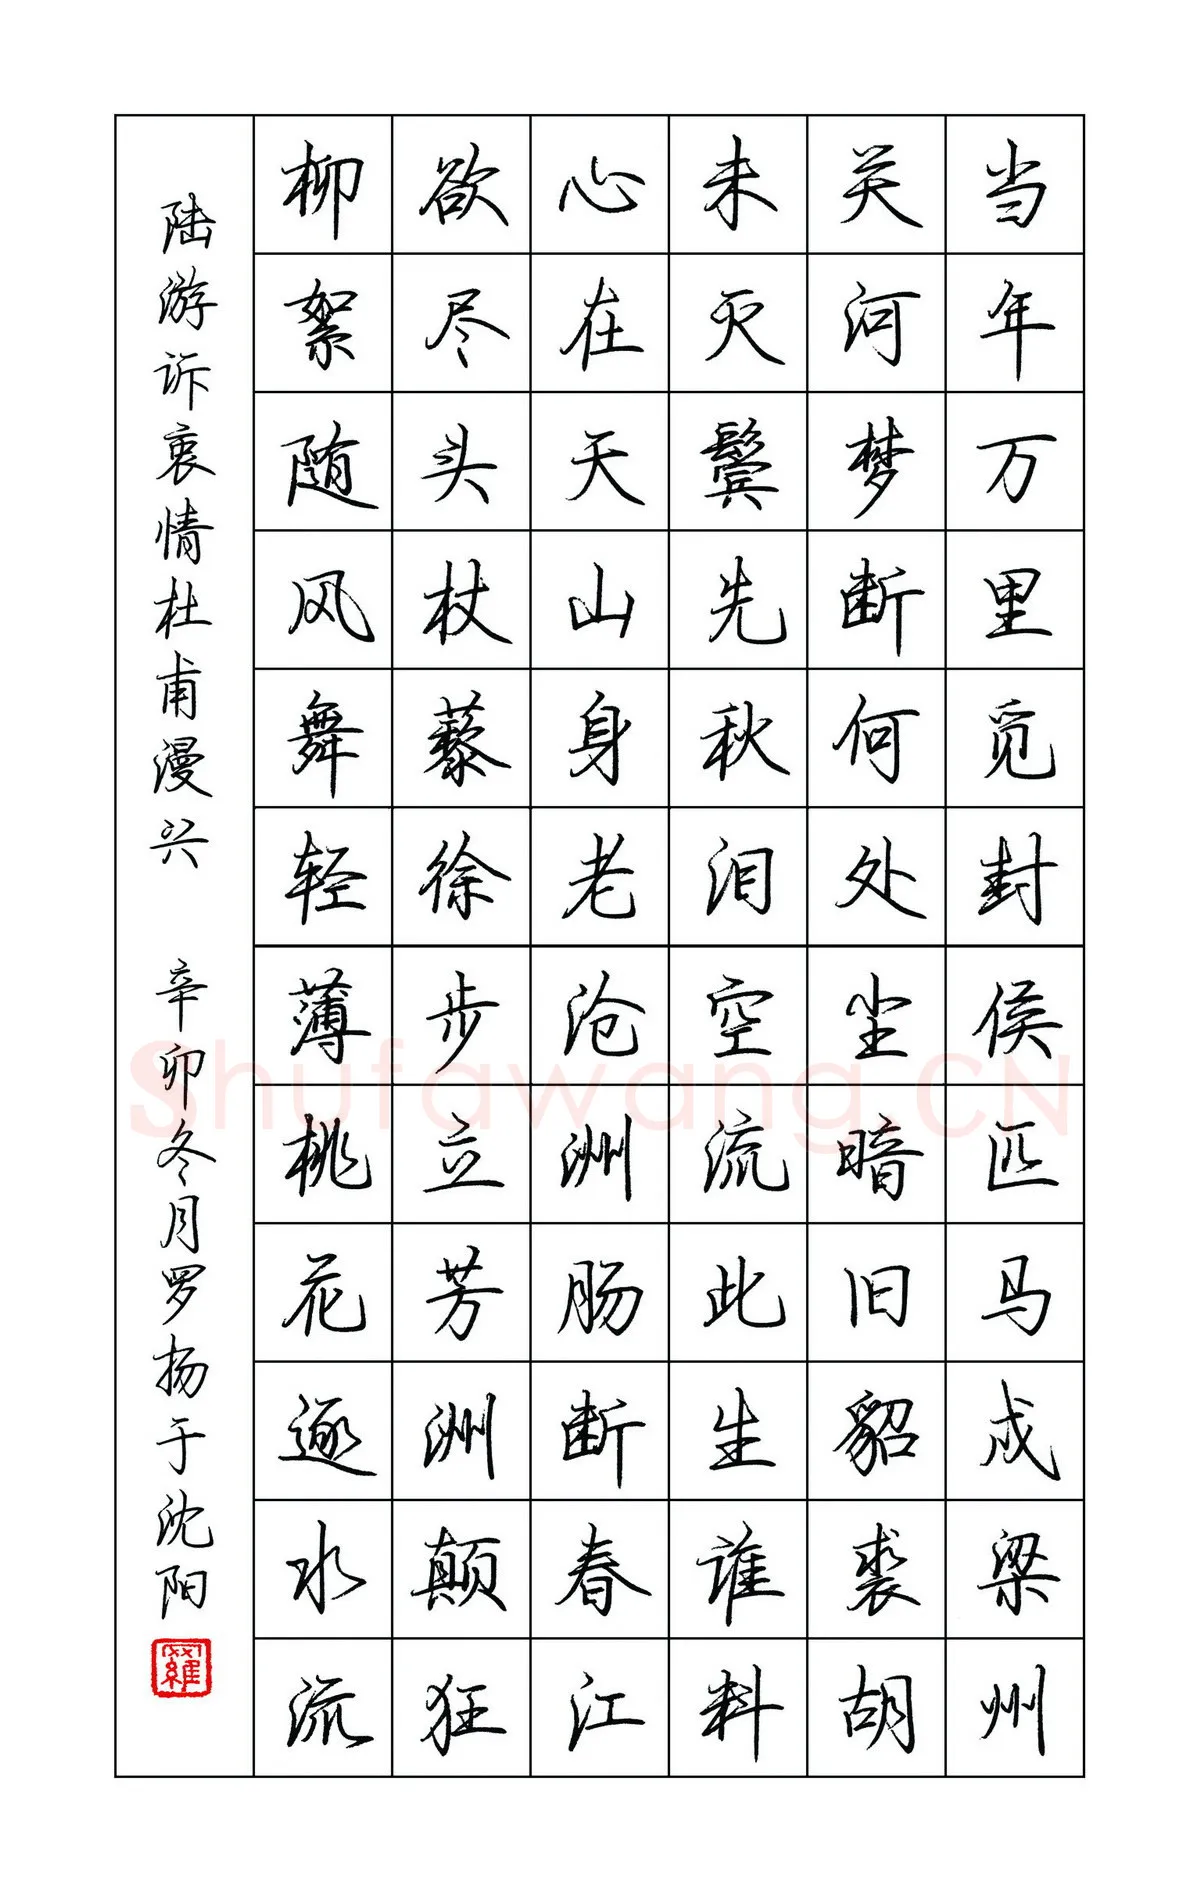 当年万里觅封侯匹马成梁州
关河梦断何处尘暗旧貂裘胡
未灭鬓先秋泪空流此生谁料
心在天山身老沧洲肠断春江
欲尽头杖藜徐步立芳洲颠狂
柳絮随风舞轻薄桃花逐水流
陆游诉衷情杜甫漫兴 辛卯冬月罗扬于沈阳
羅
Shufawang.CN